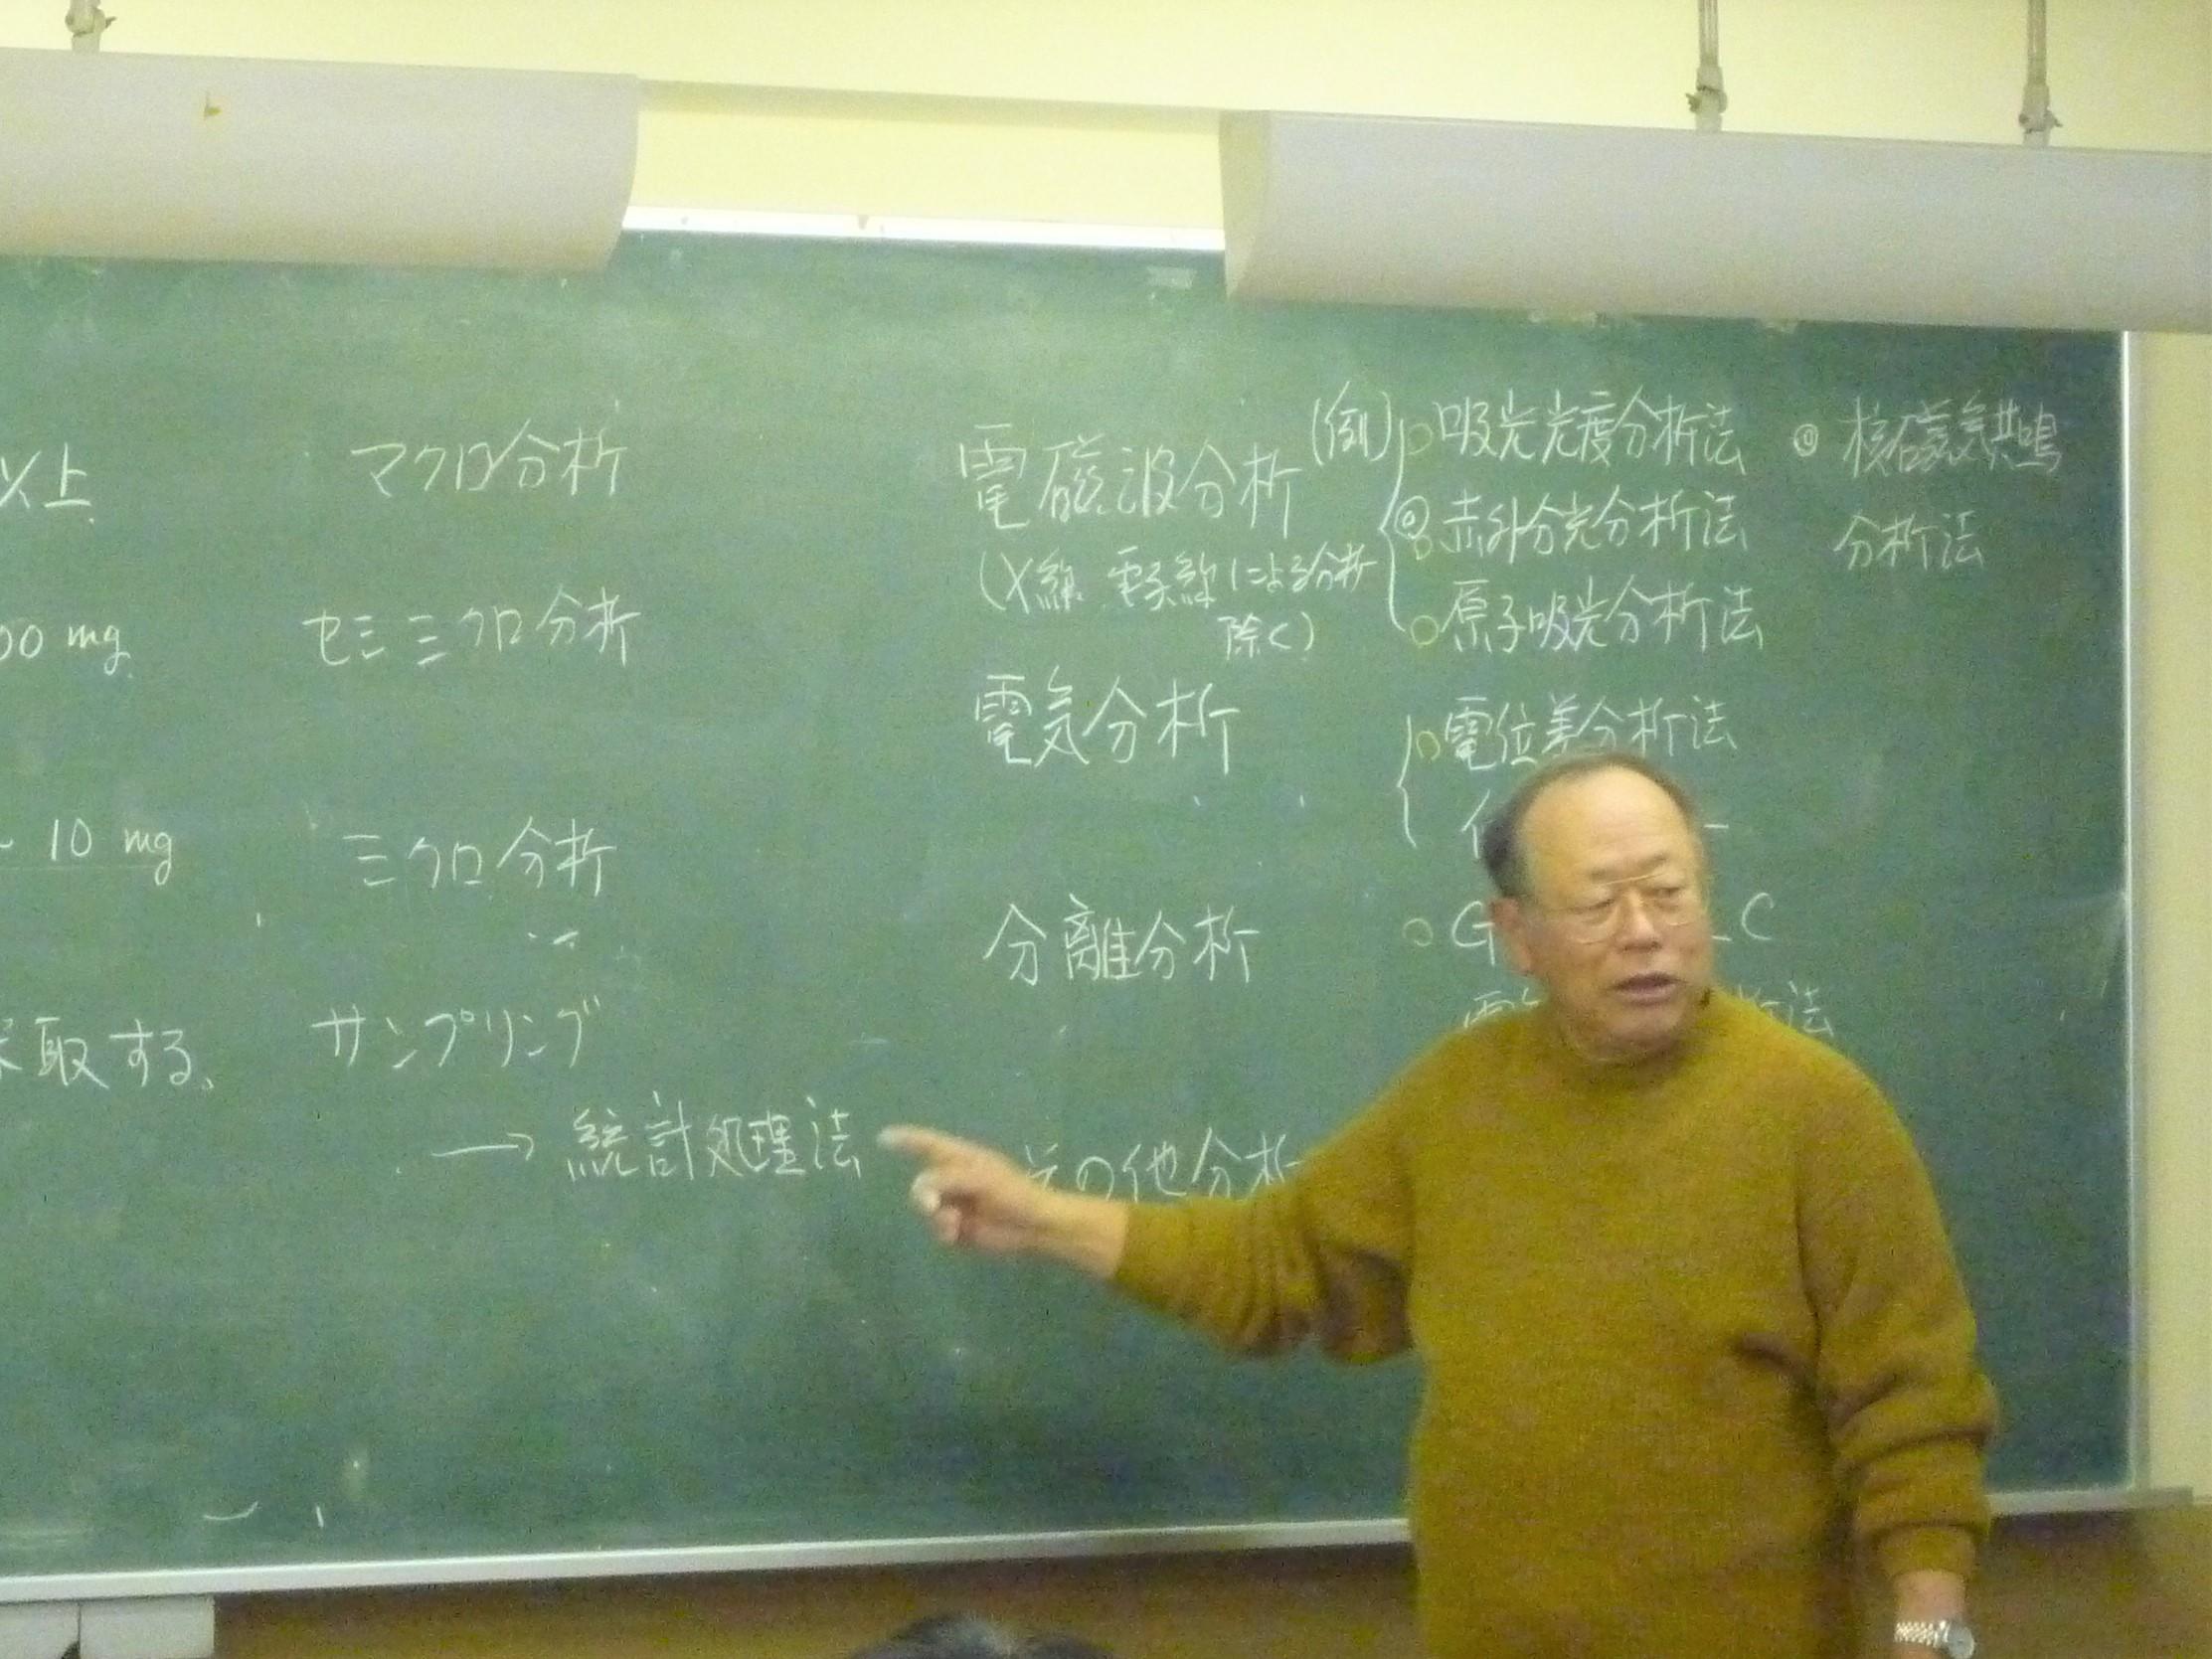 以上
マクロ分析
00 mg
セミミクロ分析
10 mg
ミクロ分析
取する。
サンプリング
→ 統計処理法
電磁波分析
(X線、電子線による分析
除く)
(例)
○吸光光度分析法
◎赤外分光分析法
○原子吸光分析法
◎ 核磁気共鳴
分析法
電気分析
○電位差分析法
分離分析
○ G
C
法
その他分析